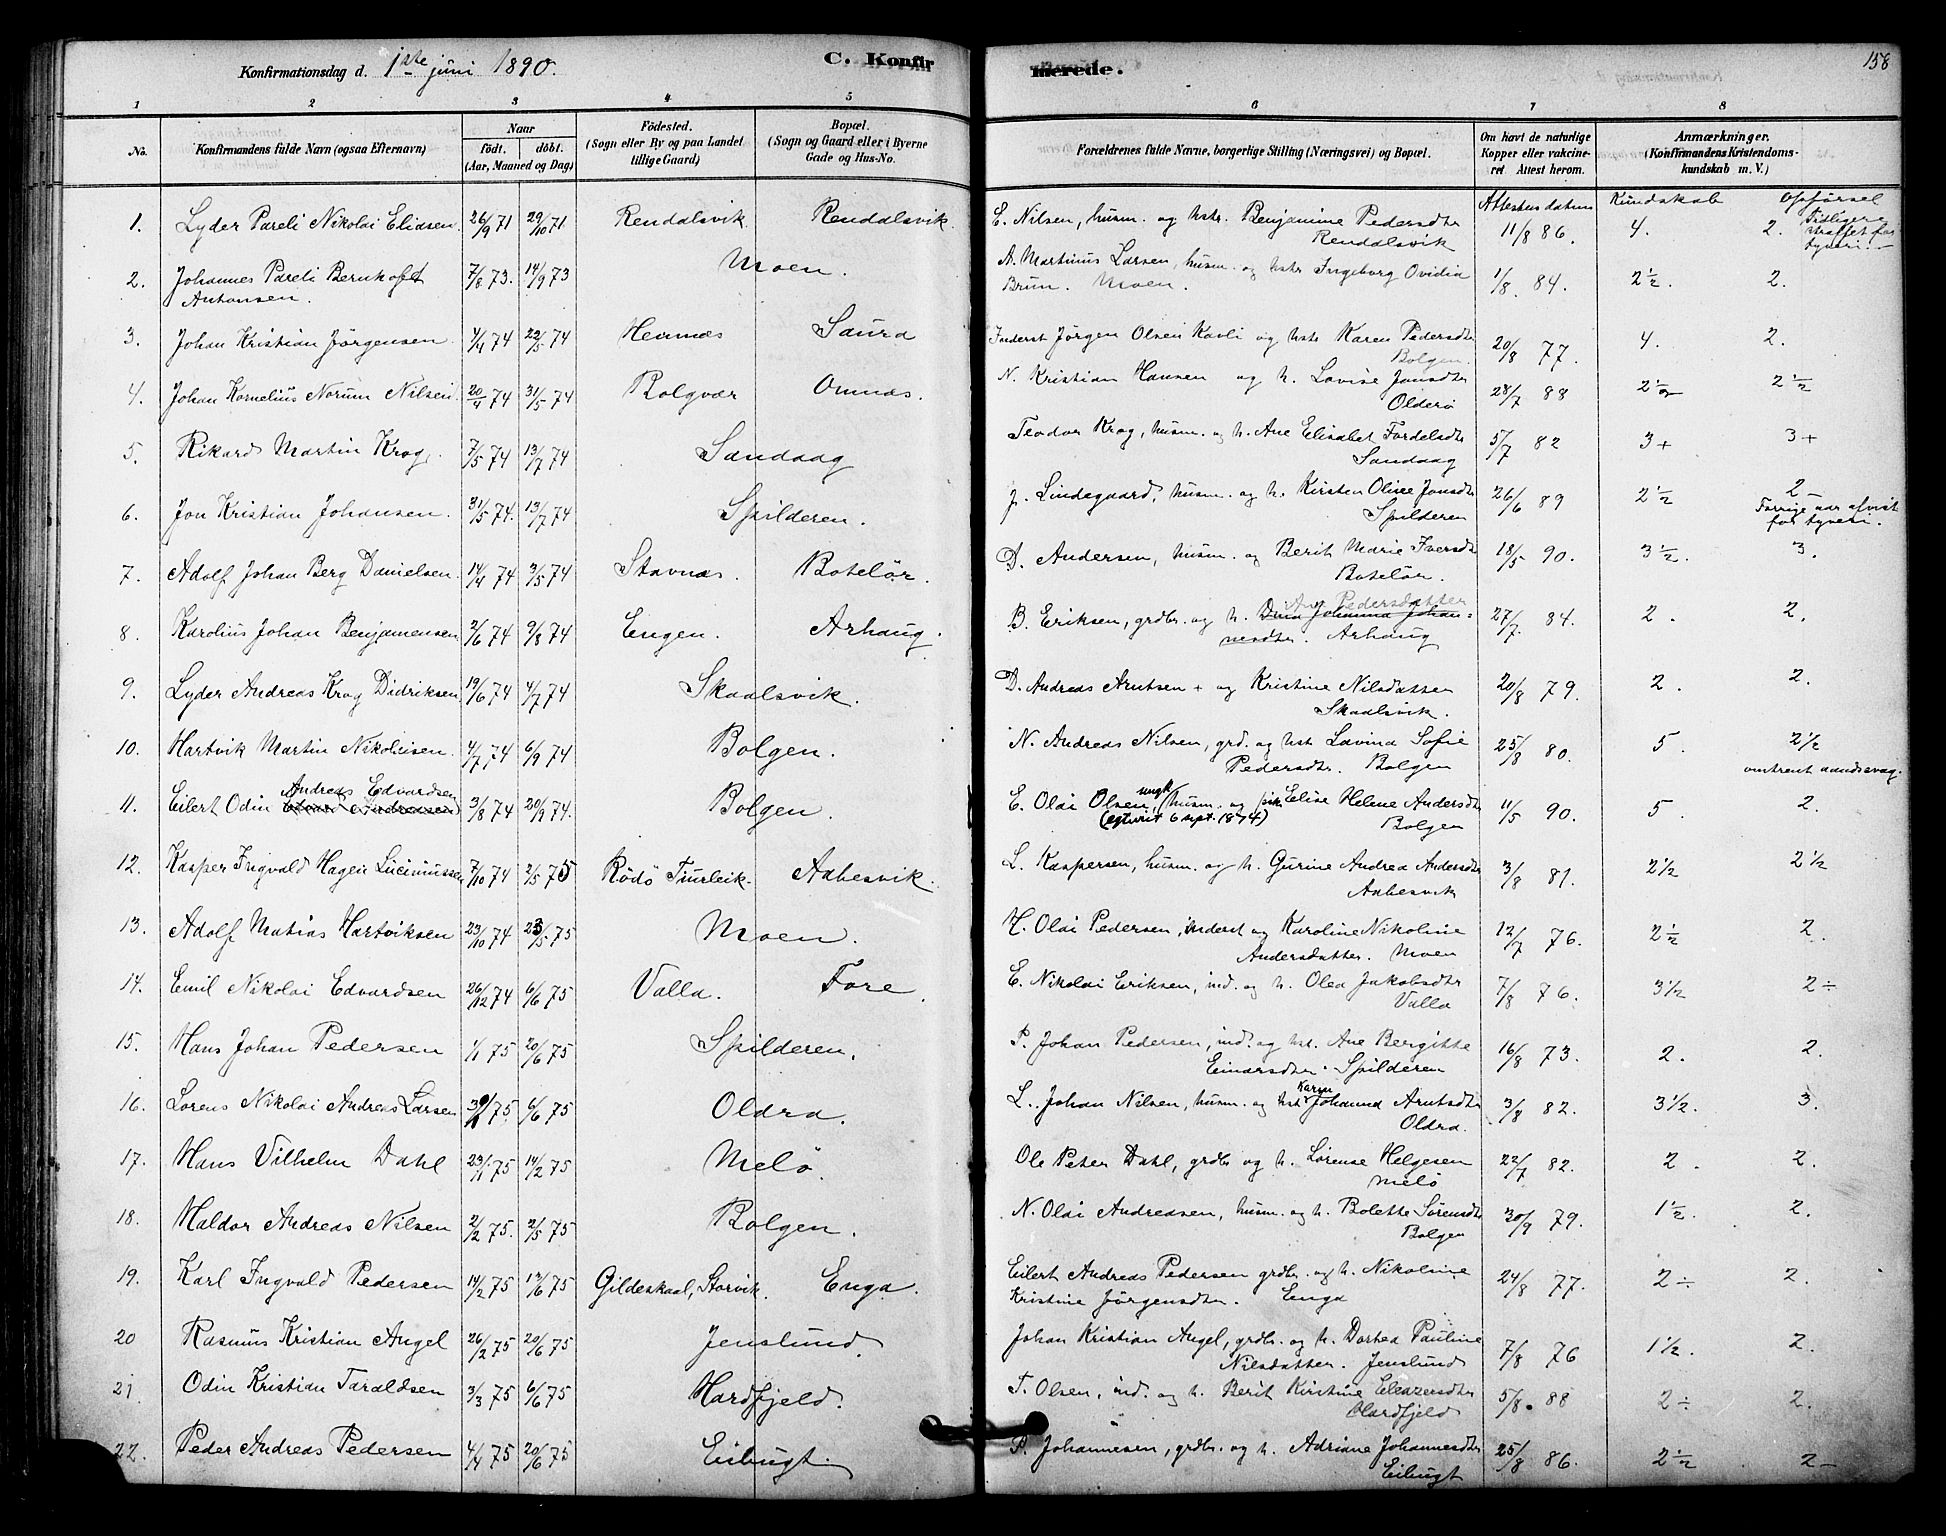 Konfirmationsdag d. 1ste juni 1890.
C. Konfirmerede.
158
1 2 3 4 5 6 7 8
No. Konfirmandens fulde Navn (ogsaa Efternavn) Naar født. døbt. (Aar, Maaned og Dag) Fødested. (Sogn eller By og paa Landet tillige Gaard) Bopæl. (Sogn og Gaard eller i Byerne Gade og Hus-No. Forældrenes fulde Navne, borgerlige Stilling (Næringsvei) og Bopæl. Om havt de naturlige Kopper eller vakcineret Attest herom. Anmærkninger. (Konfirmandens Kristendomskundskab m. V.)
Attestens datum Kundskab Opførsel
1. Lyder Pareli Nikolai Eliasen. 26/9 71 29/10 71 Rendalsvik Rendalsvik. E. Nilsen, husm. og hstr. Benjamine Pedersdtr 11/8 86. 4. 2. Tidligere straffet for tyveri.
Rendalsvik
2. Johannes Pareli Bernhoft 7/8 73. 14/9 73 Moen. A. Martinus Larsen, husm. og hstr Ingeborg Ovidia 1/8. 84. 2½. 2.
Antonsen. Brun. Moen.
3. Johan Kristian Jørgensen. 4/4 74 22/5 74 Hemnæs Saura Inderst Jørgen Olsen Kavli og hstr Karen Pedersdtr 20/8 77. 4. 2.
Bolgen.
4. Johan Kornelius Norum Nilsen. 20/4 74 31/5 74 Bolgvær Omnæs. N. Kristian Hansen og h. Lovise Jonsdtr 28/7 88 2½ 2½
Olderø
5. Rikard Martin Krog. 7/5 74 13/7 74 Sandaag Teodor Krog, husm. og h. Ane Elisabet Fordelsdtr 5/7 82 3+ 3+
Sandaag
6. Jon Kristian Johansen. 31/5 74. 13/7 74 Spilderen. J. Lindegaard, husm. og h. Kirsten Oline Jonsdtr 26/6 89 2½ 2-
Spilderen Forrige aar afvist for tyveri.
7. Adolf Johan Berg Danielsen. 14/4 74 3/5 74 Stavnæs. Botelør. D. Andersen, husm. og Berit Marie Iversdtr 18/5 90. 3½. 3.
Botelør.
8. Karolius Johan Benjamensen 2/6 74 9/8 74 Engen. Arhaug. B. Eriksen, grdbr. og h. Dina Johanna Johannesdtr. Ane Pedersdatter 27/7. 84. 2. 2.
Arhaug
9. Lyder Andreas Krog Didriksen 19/6 74 4/7 74 Skaalsvik. D. Andreas Arntsen + og Kristine Nilsdatter 20/8 79. 2. 2.
Skaalsvik.
10. Hartvik Martin Nikolaisen. 4/7 74 6/9 74 Bolgen. N. Andreas Nilsen, grd. og hst Lovina Sofie 25/8 80. 5. 2½
Pedersdtr. Bolgen omtrent aandssvag.
11. Eilert Odin Edvard Andreassen Andreas Edvardsen 3/8 74 20/9 74. Bolgen. E. Olai Olsen, ungk (husm. og pik Elise Helene Andersdtr 11/5 90. 5. 2.
(egteviet 6 sept. 1874) Bolgen
12. Kasper Ingvald Hagen Lucimussen 7/10 74 2/5 75 Rødø Tjurleik. Aabesvik. L. Kaspersen, husm. og h. Gurine Andrea Andersdtr 3/8 81. 2½ 2½
Aabesvik
13. Adolf Matias Hartviksen 23/10 74 23/5 75 Moen. H. Olai Pedersen, inderst og Karoline Nikoline 12/7 76. 2½ 2.
Andersdatter. Moen
14. Emil Nikolai Edvardsen 26/12 74 6/6 75 Valla. Fore. E. Nikolai Eriksen, ind. og h. Olea Jakobsdtr 7/8 76. 3½ 2÷
Valla
15. Hans Johan Pedersen 1/1 75 20/6 75 Spilderen. P. Johan Pedersen, ind. og hst. Ane Bergitte 16/8 73. 2. 2.
Einarsdtr. Spilderen
16. Lorens Nikolai Andreas Larsen 75. 6/6 75 Oldra. L. Johan Nilsen, husm. og hst Karen Johanna Arntsdtr 3/8 82. 3½. 3.
Oldra.
17. Hans Vilhelm Dahl 23/1 75 14/2 75 Melø. Ole Peter Dahl, grdbr og h. Lørense Helgesen 22/7 82. 2. 2.
Melø
18. Haldor Andreas Nilsen 2/2 75. 2/5 75 Bolgen. N. Olai Andreasen, husm. og h. Bolette Sørensdtr 30/9 79. 1½. 2.
Bolgen
19. Karl Ingvald Pedersen 14/2 75 13/6 75 Gildeskaal, Storvik. Enga. Eilert Andreas Pedersen grdbr. og h. Nikoline 24/8 77. 2÷ 2.
Kristine Jørgensdtr. Enga
20 Rasmus Kristian Angel 26/2 75 20/6 75 Jenslund. Johan Kristian Angel, grdbr. og h. Dortea Pauline 7/8 76 1½. 2.
Nilsdatter. Jenslund
21 Odin Kristian Taraldsen 3/3 75 6/6 75 Hardfjeld. T. Olsen, ind. og h. Berit Kirstine Eleazersdtr 5/8. 88 2÷ 2.
Hardfjeld
22. Peder Andreas Pedersen 4/4 75 20/6 75 Eilugt. P. Johannesen, grdbr. og h. Adriane Johannesdtr 25/8 86. 2½ 2-
Eilugt